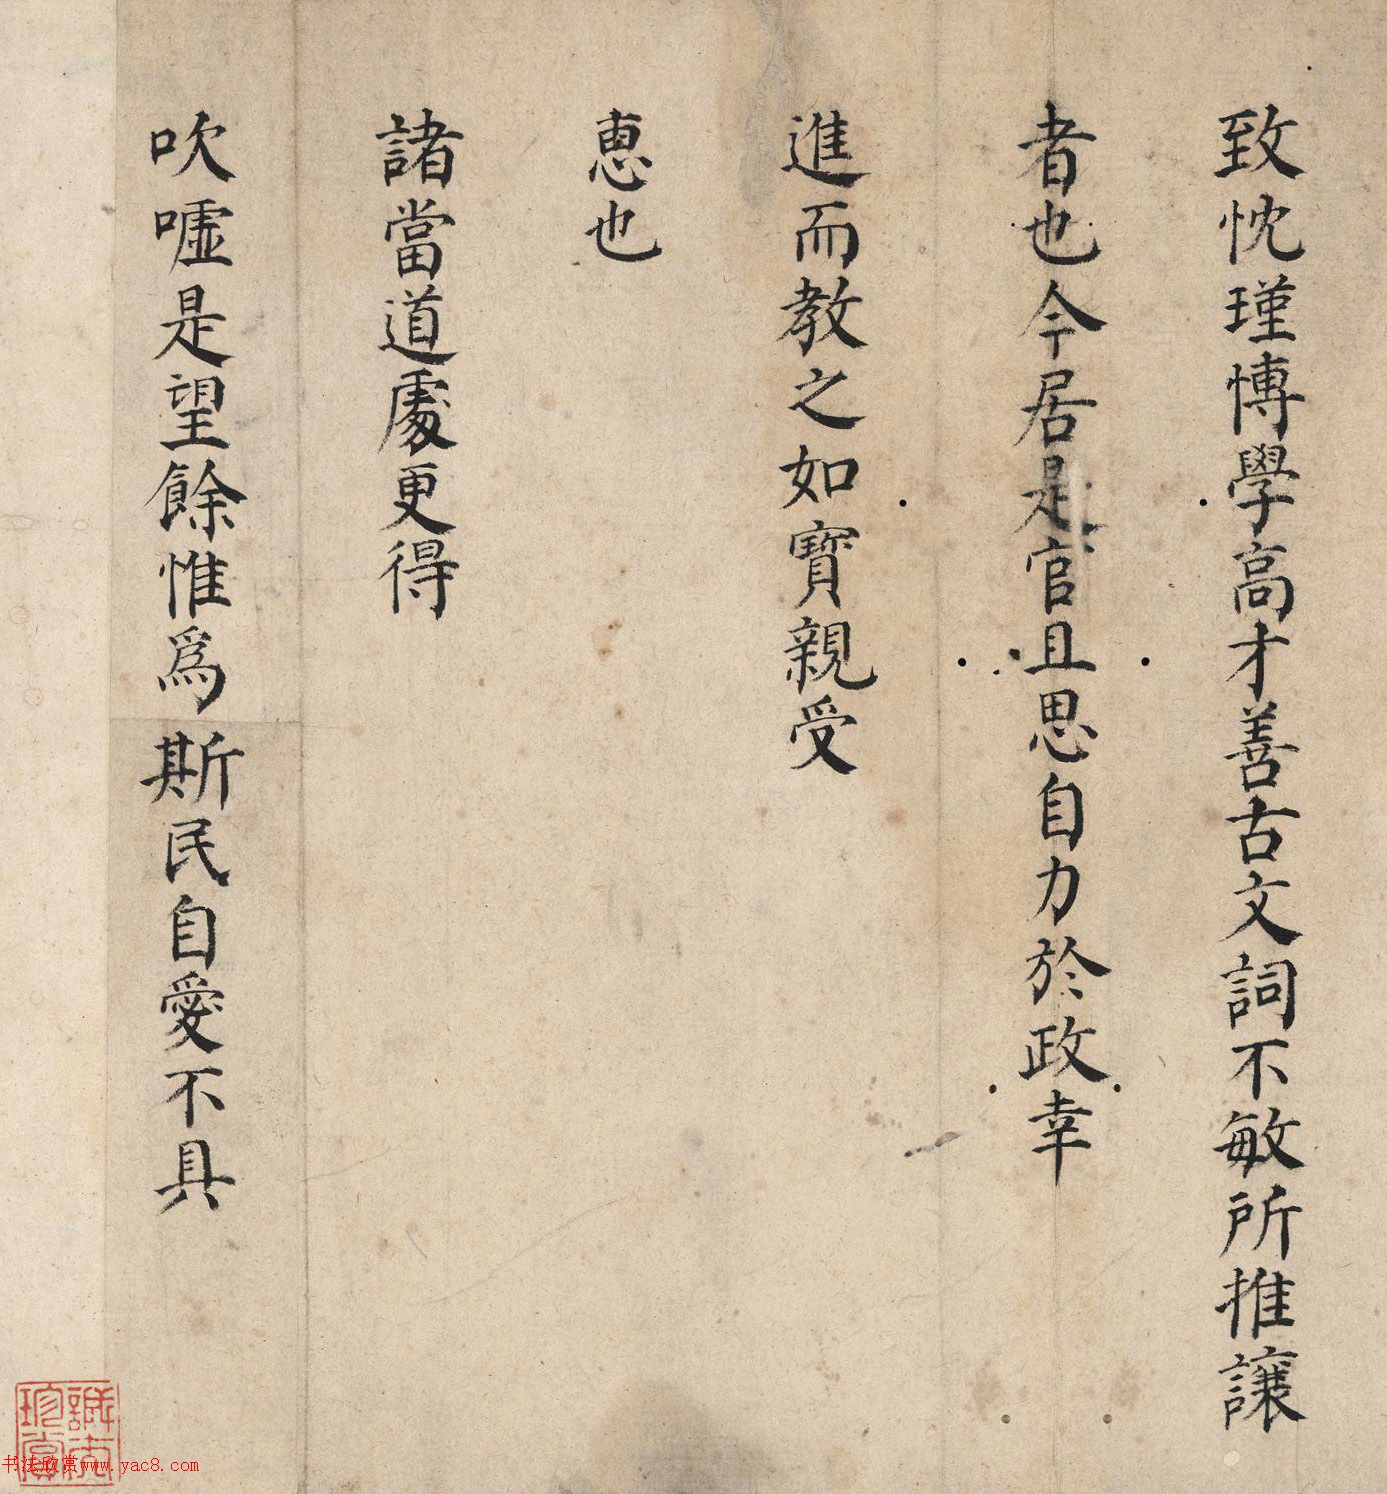 致忱瑾博學高才善古文詞不敏所推讓
者也今居是官且思自力於政幸
進而教之如寳親受
恵也
諸當道處更得
吹噓是望餘惟爲斯民自愛不具
书法欣赏www.yac8.com